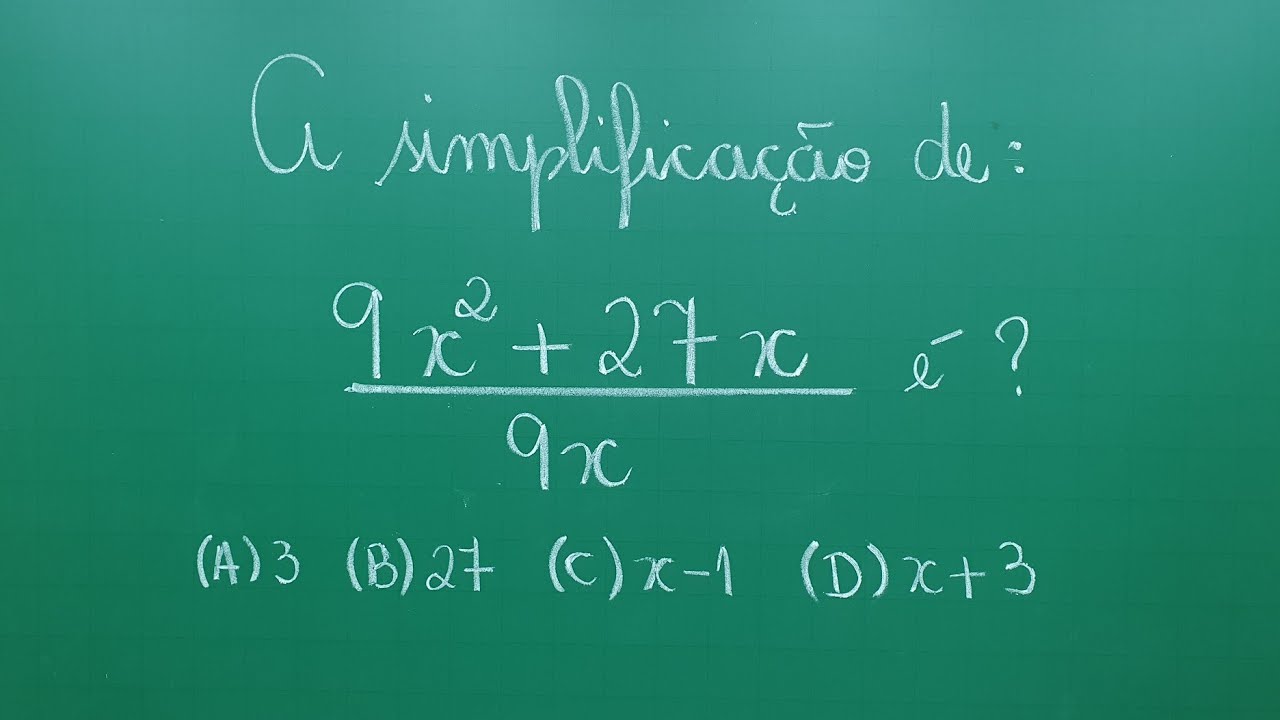 A simplificação de:
9x² + 27x é ?
9x
(A) 3 (B) 27 (C) x-1 (D) x+3